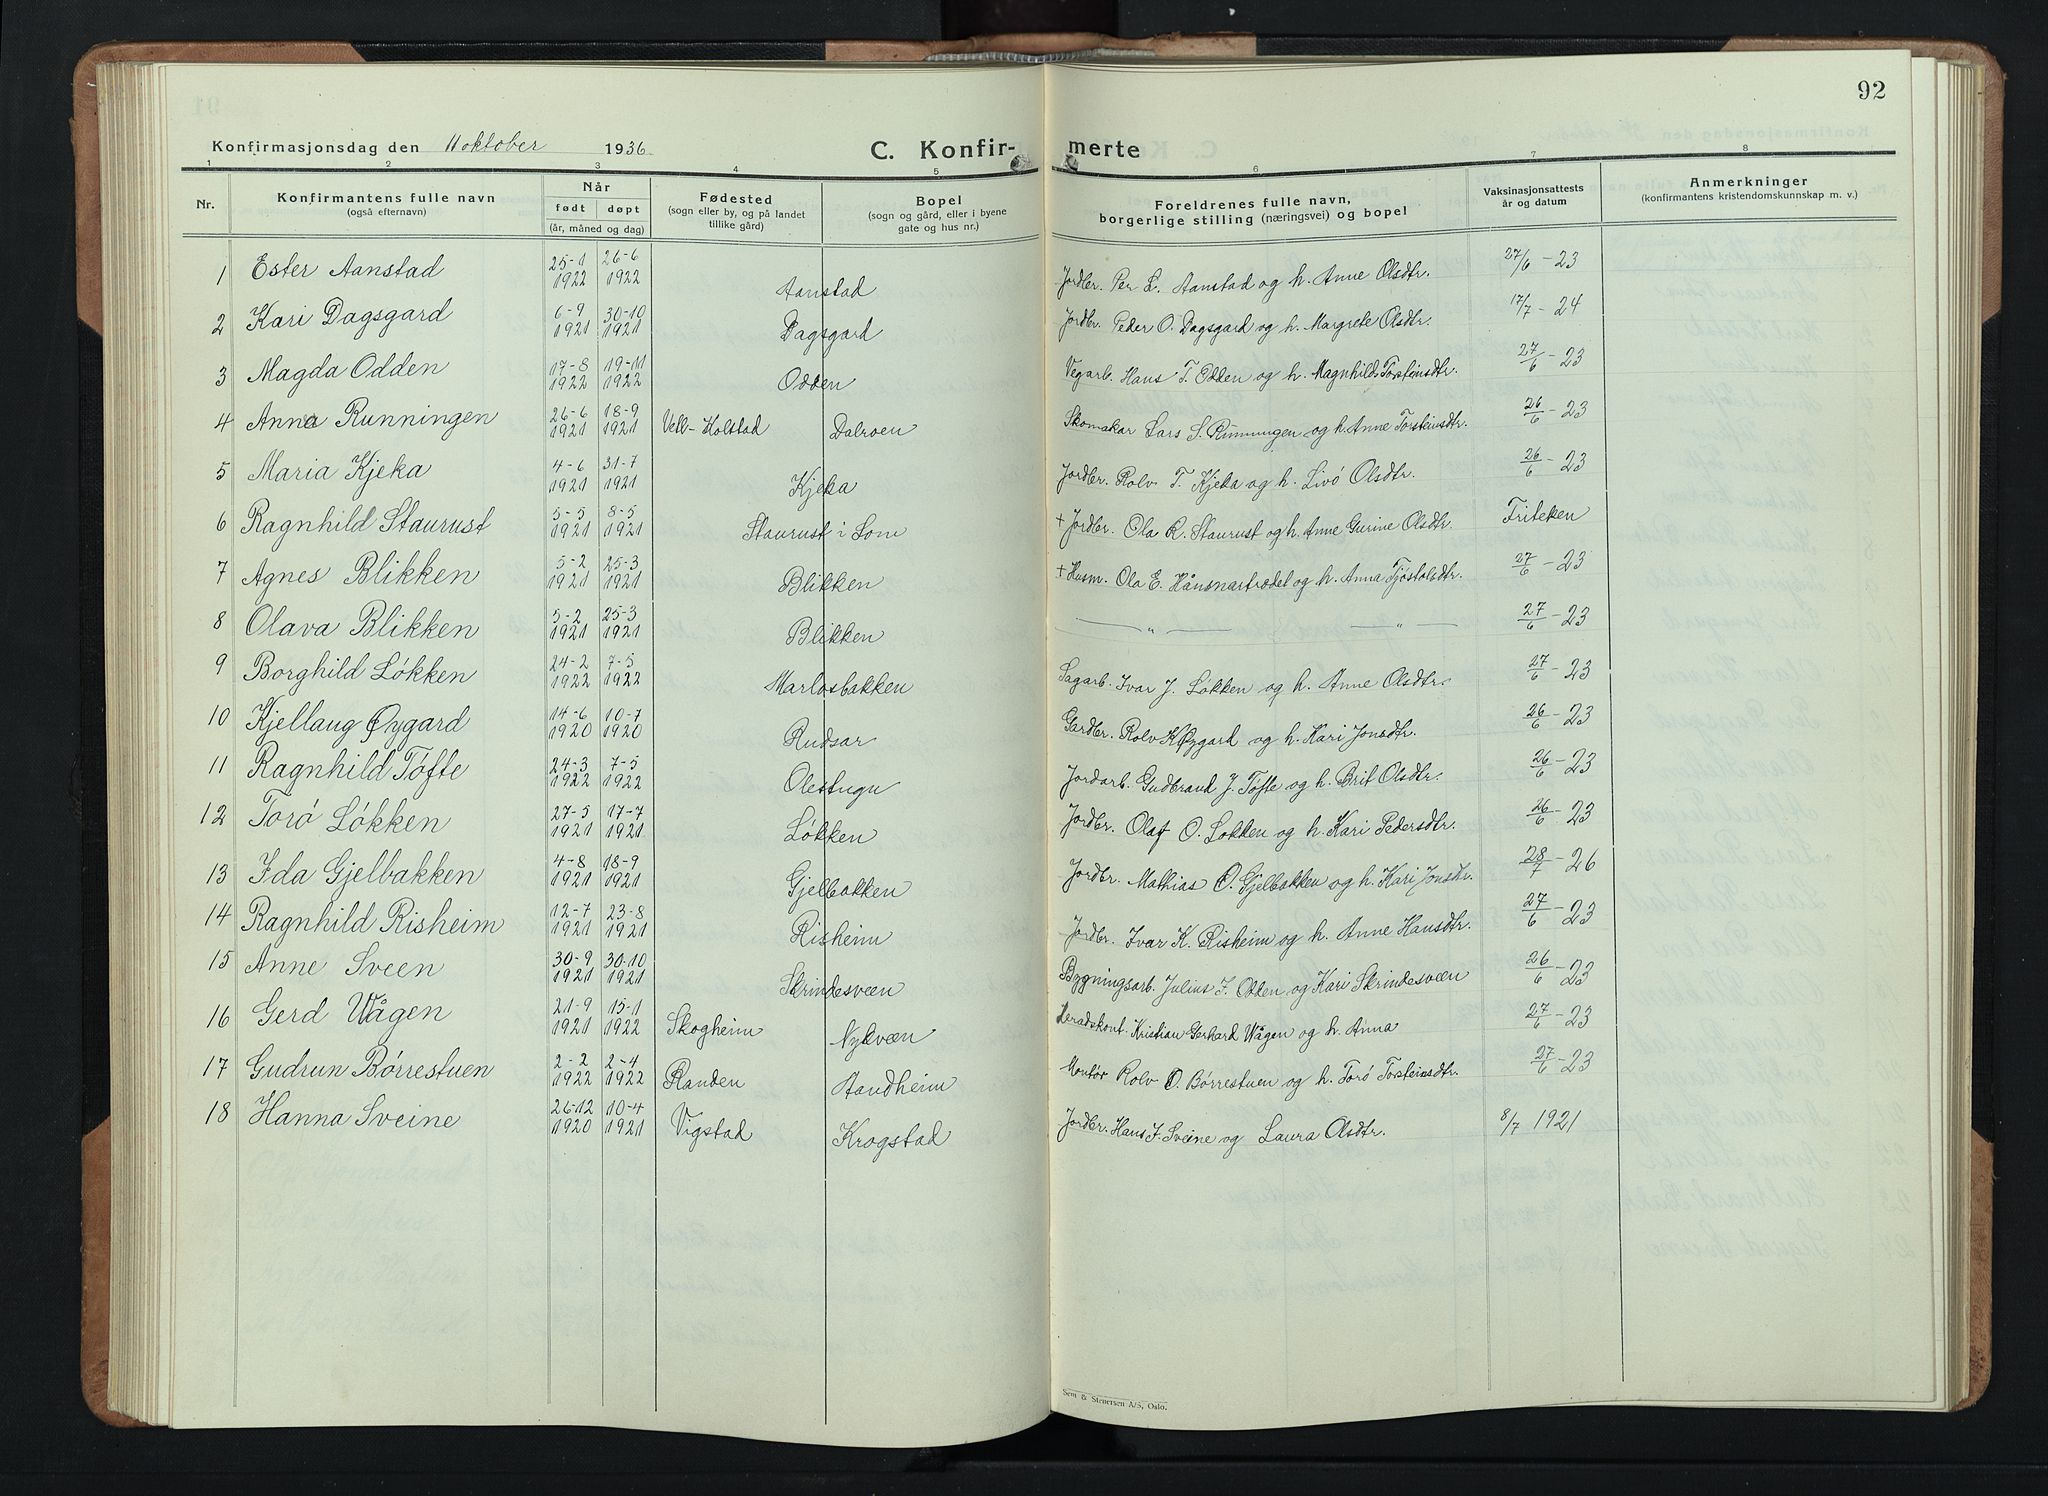 92
Konfirmasjonsdag den 11 oktober 1936 C. Konfir- merte
1 2 3 4 5 6 7 8
Nr. Konfirmantens fulle navn (også efternavn) Når født døpt (år, måned og dag) Fødested (sogn eller by, og på landet tillike gård) Bopel (sogn og gård, eller i byene gate og hus nr.) Foreldrenes fulle navn, borgerlige stilling (næringsvei) og bopel Vaksinasjonsattests år og datum Anmerkninger (konfirmantens kristendomskunnskap m. v.)
1 Ester Aanstad 25-1 1922 26-6 1922 Aanstad Jordbr. Per L. Aanstad og h. Anne Olsdtr. 27/6 - 23
2 Kari Dagsgard 6-9 1921 30-10 1921 Dagsgard Jordbr. Peder O. Dagsgard og h. Margrete Olsdtr. 17/7 - 24
3 Magda Odden 17-8 1922 19-11 1922 Odden Vegarb. Hans T. Odden og h. Magnhild Torsteinsdtr. 27/6 - 23
4 Anna Runningen 26-6 1921 18-9 1921 Vell-Holstad Dalroen Skomakar Lars S. Runningen og h. Anne Torsteinsdtr. 26/6 - 23
5 Maria Kjeka 4-6 1921 31-7 1921 Kjeka Jordbr. Rolv T. Kjeka og h. Livö Olsdtr. 26/6 - 23
6 Ragnhild Staurust 5-5 1921 8-5 1921 Staurust i Lom + Jordbr. Ola R. Staurust og h. Anne Gurine Olsdtr. Friteken
7 Agnes Blikken 5-2 1921 25-3 1921 Blikken + Husm. Ola E. Hånsnartrædet og h. Anna Tjöstolsdtr. 27/6 - 23
8 Olava Blikken 5-2 1921 25-3 1921 Blikken — " — — " — 27/6 - 23
9 Borghild Løkken 24-2 1922 7-5 1922 Marlosbakken Sagarb. Ivar J. Løkken og h. Anne Olsdtr. 27/6 - 23
10 Kjellaug Øygard 14-6 1920 10-7 1920 Rudsar Gardbr. Rolv K Øygard og h. Kari Jonsdtr. 26/6 - 23
11 Ragnhild Tøfte 24-3 1922 7-5 1922 Olestugu Jordarb. Gudbrand J. Tøfte og h. Brit Olsdtr. 26/6 - 23
12 Torø Løkken 27-5 1921 17-7 1921 Løkken Jordbr. Olaf O. Løkken og h. Kari Pedersdtr. 26/6 - 23
13 Ida Gjelbakken 4-8 1921 18-9 1921 Gjelbakken Jordbr. Mathias O. Gjelbakken og h. Kari Jonsdtr. 28/7 - 26
14 Ragnhild Risheim 12-7 1921 23-8 1921 Risheim Jordbr. Ivar K. Risheim og h. Anne Hansdtr. 27/6 - 23
15 Anne Sveen 30-9 1921 30-10 1921 Skrindesveen Bygningsarb. Julius J. Odden og Kari Skrindesveen 26/6 - 23
16 Gerd Wågen 21-9 1921 15-1 1922 Skogheim Nykveen Heradskont. Kristian Gerhard Wågen og h. Anna 27/6 - 23
17 Gudrun Børrestuen 2-2 1922 2-4 1922 Randen Aandheim Montør Rolv O. Børrestuen og h. Torø Torsteinsdtr. 27/6 - 23
18 Hanna Sveine 26-12 1920 10-4 1921 Vigstad Krogstad Jordbr. Hans J. Sveine og Laura Olsdtr. 8/7 1921
Sem & Stenersen A/S, Oslo.